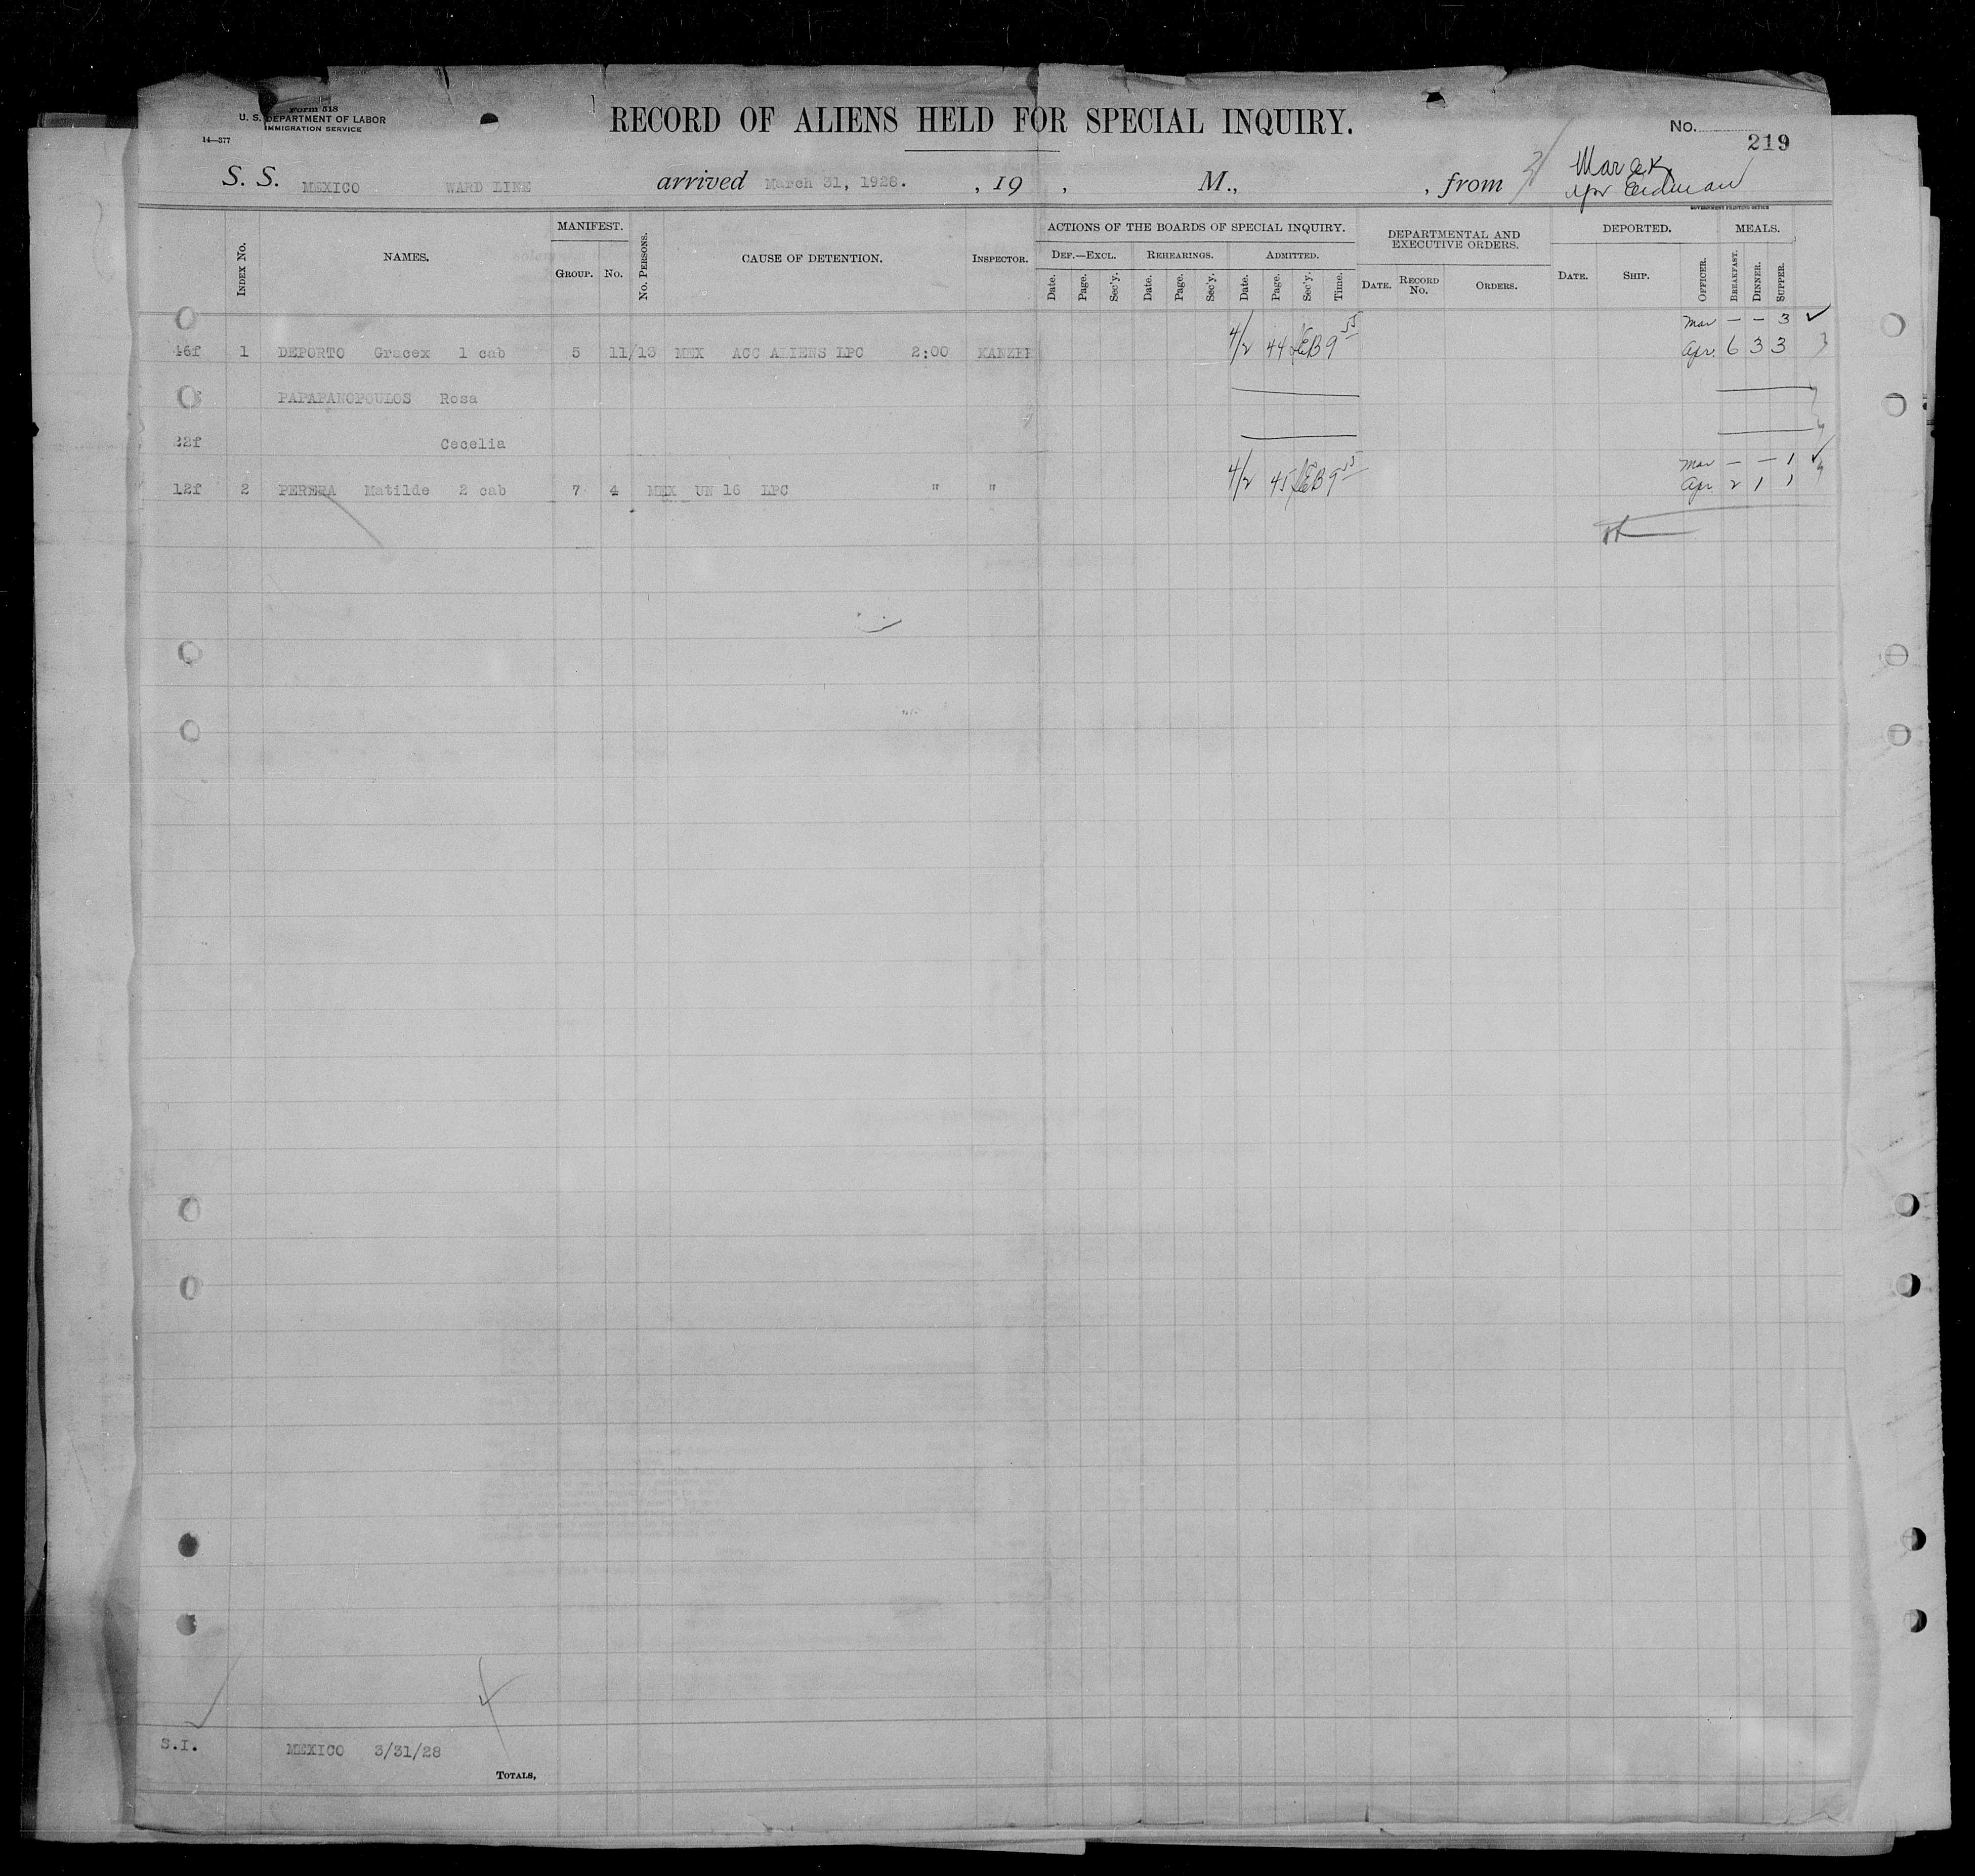 Form 518
U. S. DEPARTMENT OF LABOR
IMMIGRATION SERVICE
14—377
RECORD OF ALIENS HELD FOR SPECIAL INQUIRY.
No. 219
S. S. MEXICO WARD LINE arrived March 31, 1928. , 19 , M., , from
GOVERNMENT PRINTING OFFICE
Index No. NAMES. MANIFEST. Group. No. No. Persons. CAUSE OF DETENTION. Inspector. ACTIONS OF THE BOARDS OF SPECIAL INQUIRY. DEPARTMENTAL AND EXECUTIVE ORDERS. DEPORTED. MEALS.
Def.—Excl. Rehearings. Admitted.
Date. Page. Sec'y. Date. Page. Sec'y. Date. Page. Sec'y. Time. Date. Record No. Orders. Date. Ship. Officer. Breakfast. Dinner. Supper.
Mar — — 3
46f 1 DEPORTO Gracex 1 cab 5 11/13 MEX ACC ALIENS LPC 2:00 4/2 44 9 55 Apr. 6 3 3
PAPAPANOPOULOS Rosa
22f Cecelia
Mar — — 1
12f 2 PERERA Matilde 2 cab 7 4 MEX UN 16 LPC " " 4/2 45 9 55 Apr 2 1 1
4
S.I. MEXICO 3/31/28
Totals,